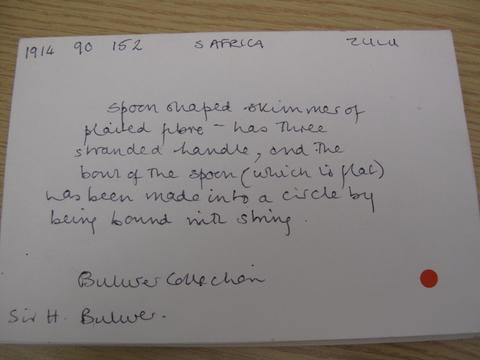 1914 90 152 S AFRICA ZULU
spoon shaped skimmer of
plaited fibre - has three
stranded handle, and the
bowl of the spoon (which is flat)
has been made into a circle by
being bound with string.
Bulwer Collection
Sir H. Bulwer.